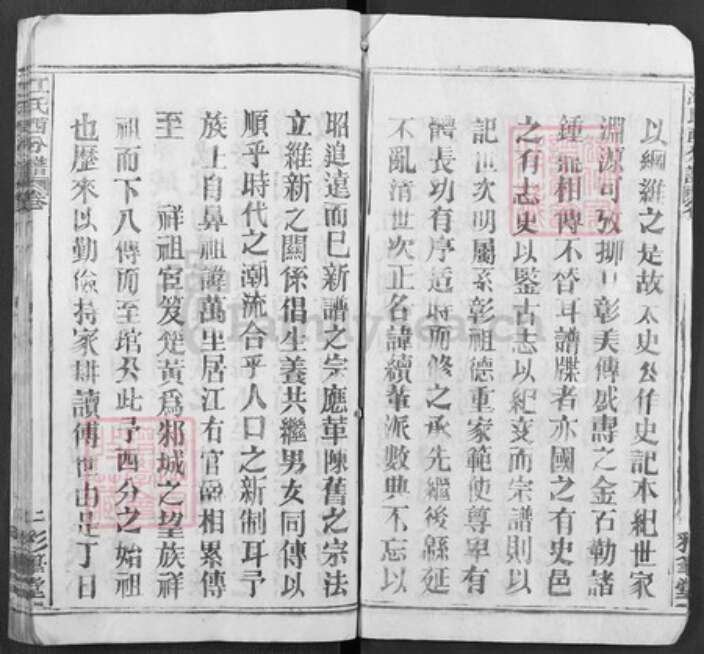 以綱維之是故太史公作史記本紀世家
淵源可攷抑且彰美傳盛壽之金石勒諸
鍾鼎相傳不替耳譜牒者亦國之有史邑
之有志史以鑒古志以紀變而宗譜則以
記世次明屬系彰祖德重家範使尊卑有
體長幼有序适時而修之承先繼後緜延
不亂清世次正名諱續葷派數典不忘以
昭追遠而已新譜之宗應革陳舊之宗法
立維新之關係倡生養共繼男女同傳以
順乎時代之潮流合乎人口之新制耳予
族上自鼻祖諱萬里居江右官爵相累傳
至 祥祖宦笈楚黃爲邾城之望族祥
祖而下八傳而至琯公此予西分之始祖
也歷來以勤儉持家耕讀傳世由是丁日
江氏西分譜 卷
FamilySearch